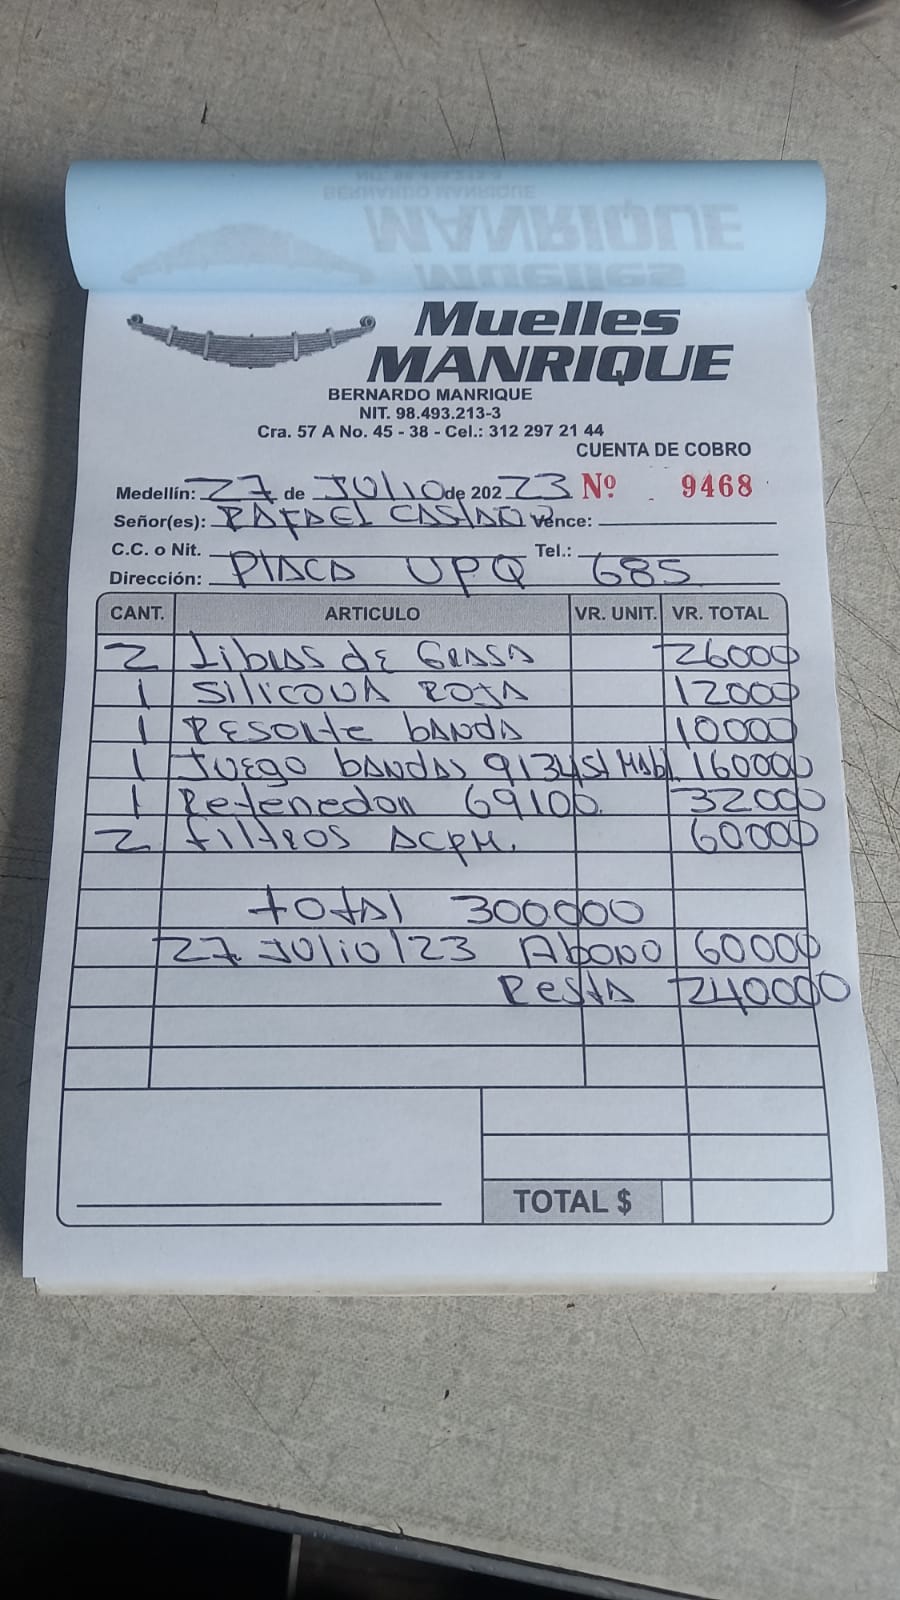 Muelles
MANRIQUE
BERNARDO MANRIQUE
NIT. 98.493.213-3
Cra. 57 A No. 45 - 38 - Cel.: 312 297 21 44
CUENTA DE COBRO
Medellín: 27 de Julio de 202 23 Nº 9468
Señor(es): RAFAEL CASTAÑO Vence:
C.C. o Nit. Tel.:
Dirección: PlACA UPQ 685
CANT. ARTICULO VR. UNIT. VR. TOTAL
2 libras de GRASA 26000
1 SiliCONA ROJA 12000
1 RESORte bANDA 10000
1 Juego bANDAS 9134 S/ 160000
1 Retenedor 69100 32000
2 filtROS ACPM. 60000
total 300000
27 Julio/23 AbONO 60000
Resta 240000
TOTAL $